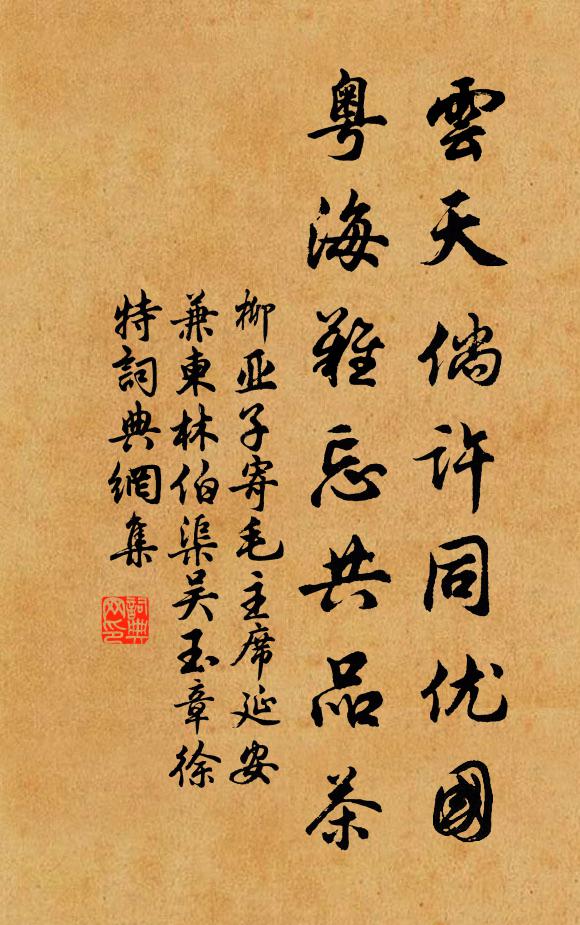 雲天倘許同优國
粵海難忘共品茶
柳亚子寄毛主席延安
兼柬林伯渠吴玉章徐
特詞典網集
詞典網印